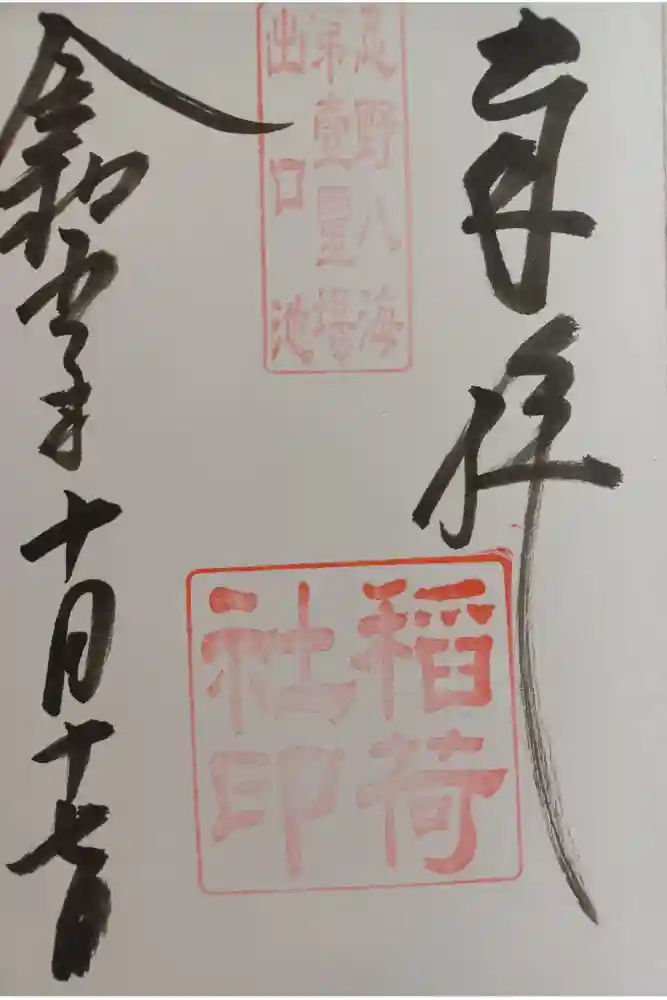 奉拝
忍野八海
第壹霊場
出口池
稲荷
社印
令和五年十月十七日